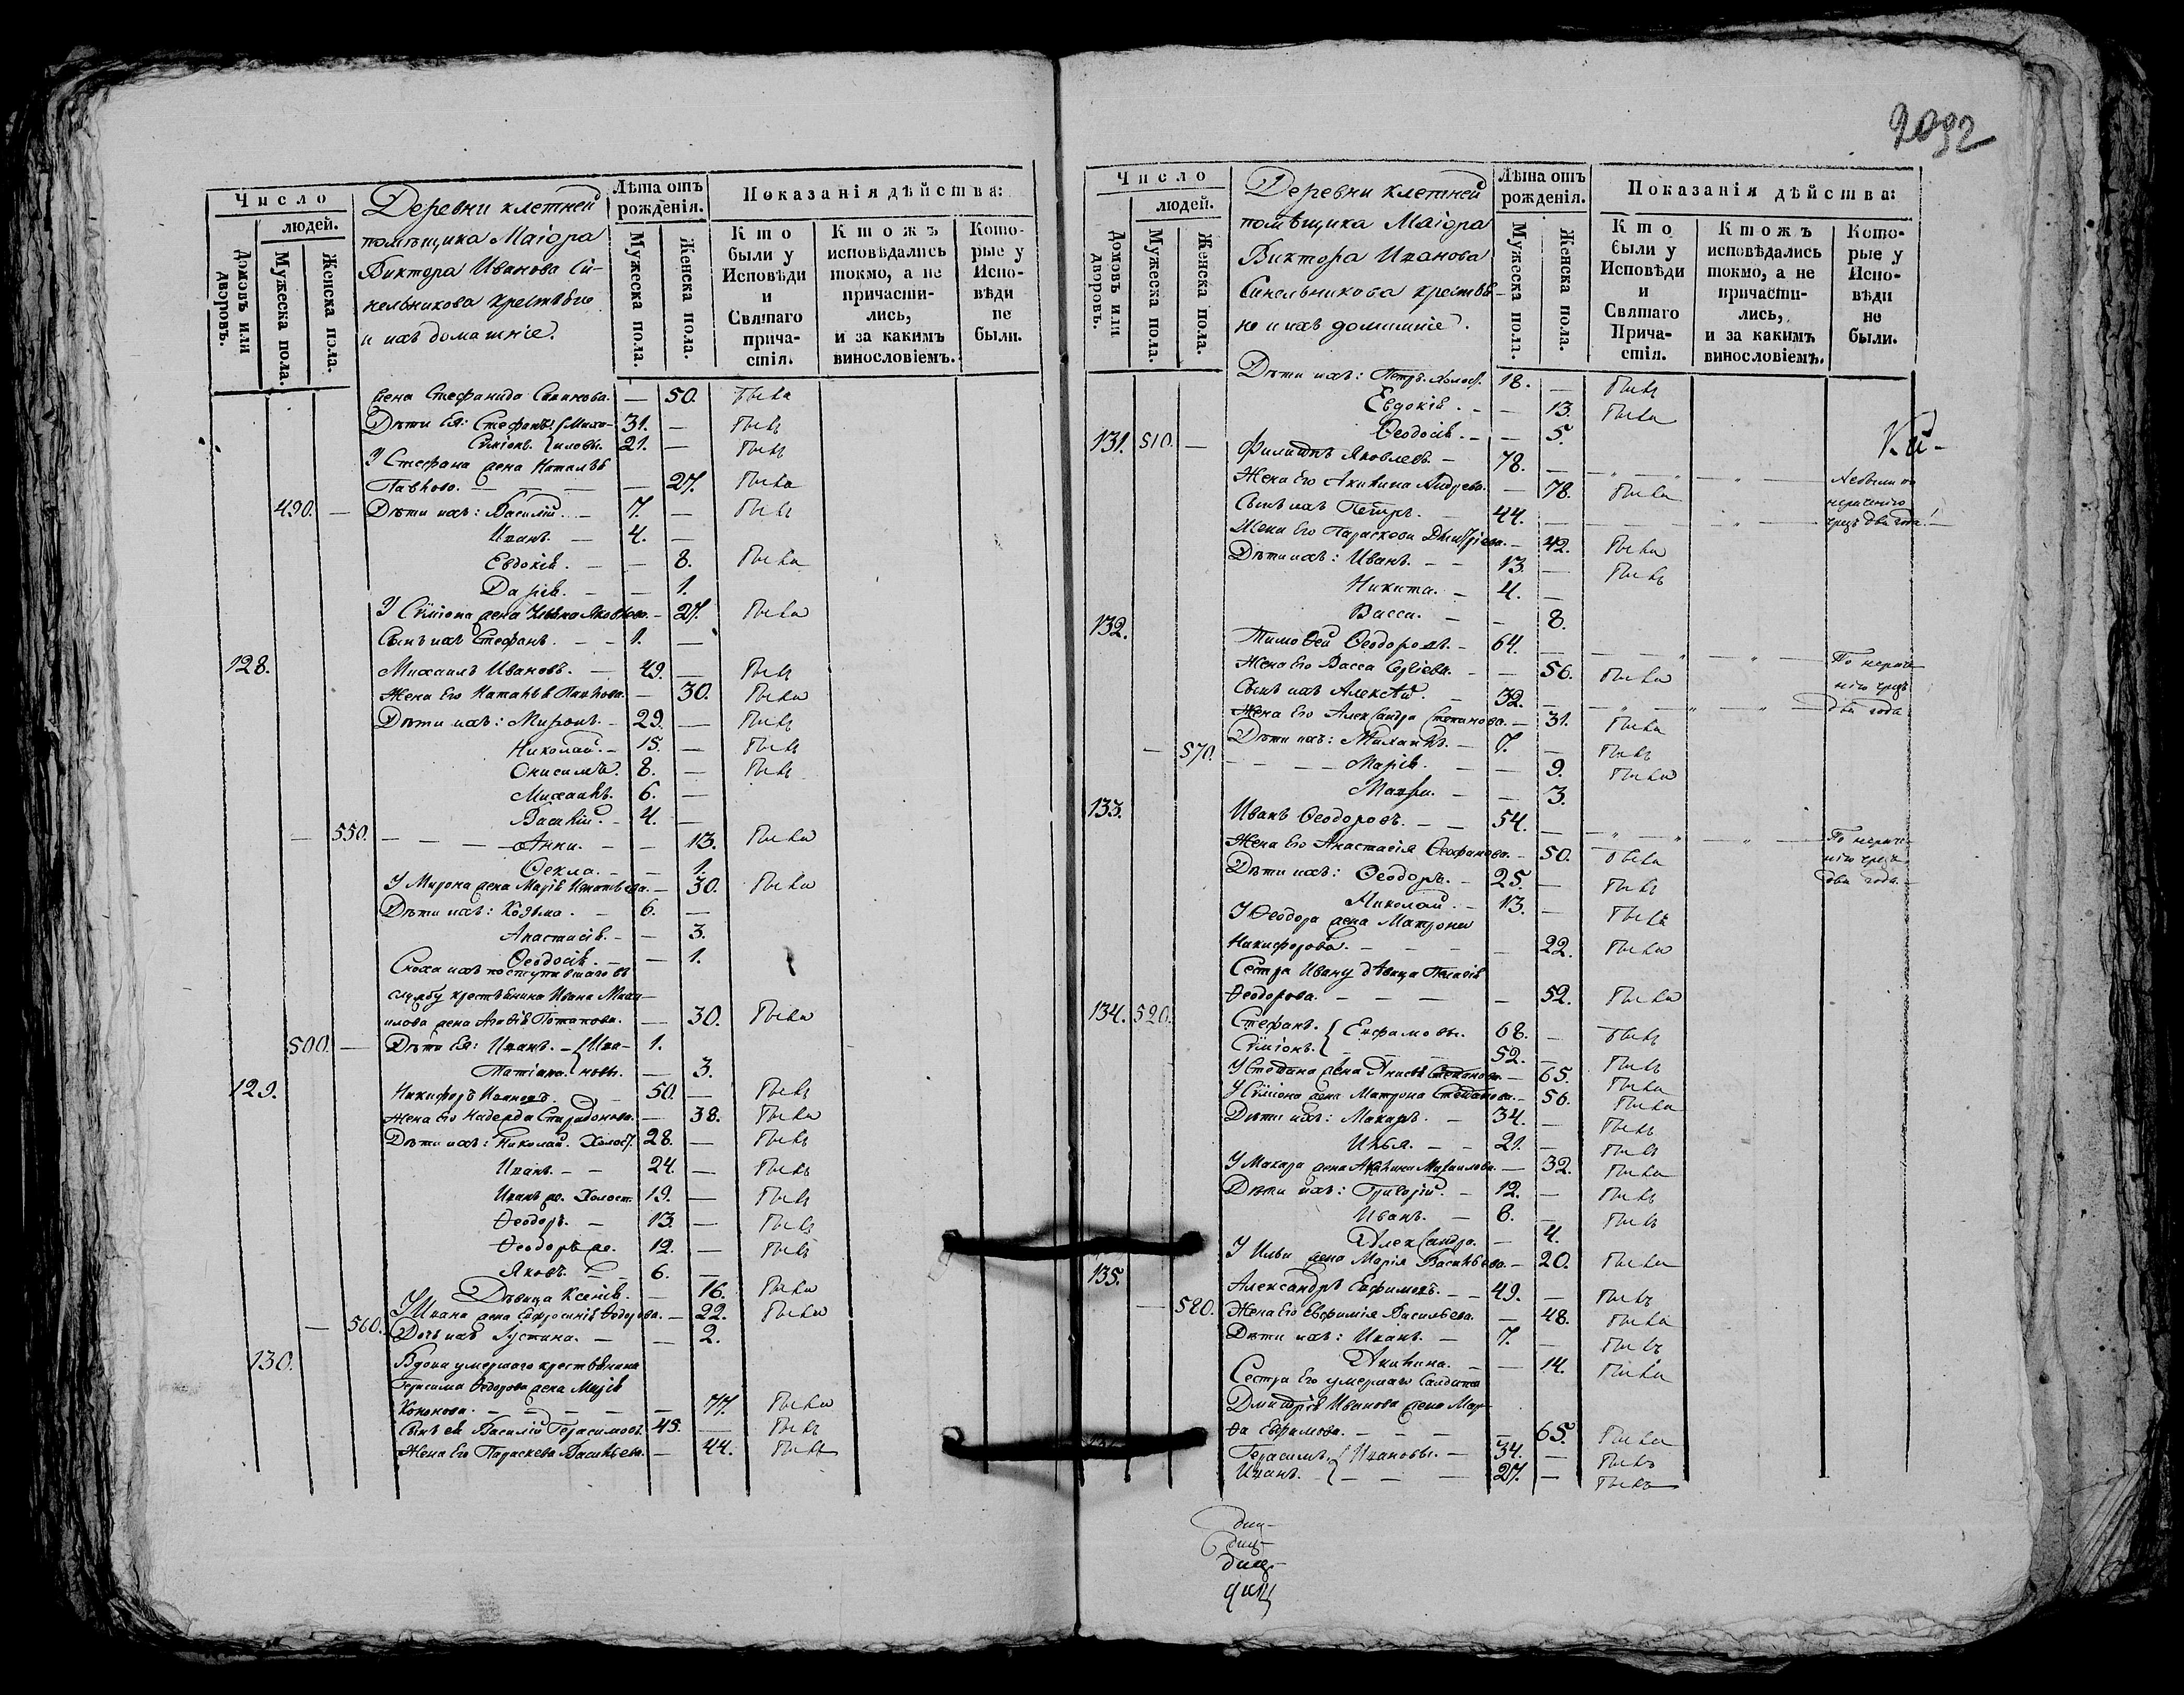 2092
Число
людей.
Домовъ или дворовъ.
Мужеска пола.
Женска пола.
Деревни клетней
помѣщика Маіора
Виктора Иванова Си-
нельникова крестьяне
и ихъ домашніе.
Лѣта отъ рожденія.
Мужеска пола.
Женска пола.
Показанія дѣйства:
Кто были у Исповѣди и Святаго причастія.
Ктожъ исповѣдались токмо, а не причастились, и за какимъ винословіемъ.
Которые у Исповѣди не были.
жена Стефанида — 50. была
Дѣти Ея: Стефанъ Миха- 31. — былъ
Сѵміонъ иловы. 21. — былъ
У Стефана жена Наталья
Павлова. — 27. была
490. — Дѣти ихъ: Василій. — 7. — былъ
Иванъ. — 4. —
Евдокія. — — 8. была
Дарія. — — 1.
У Сѵміона жена Яковлева. — 27. была
Сынъ ихъ Стефанъ. — 1. —
128. Михаилъ Ивановъ. — 49. — былъ
Жена Его Наталья Павлова. — 30. была
Дѣти ихъ: Миронъ. — 29. — былъ
Николай. — 15. — былъ
Онисимъ. 8. — былъ
Михаилъ. 6. —
Василій. — 4. —
— 550. — Анна. — — 13. была
Оекла. — — 1.
У Мирона жена Марія Игнатьева. — 30. была
Дѣти ихъ: Козьма. — 6. —
Анастасія. — — 3.
Ѳеодосія. — — 1.
Сноха ихъ поступившаго въ
службу крестьянина Ивана Миха-
илова жена Агафія Потапова. — 30. была
500. — Дѣти Ея: Иванъ. Ива- 1.
Татіана. новы. — 3.
129. Никифоръ Ивановъ. — 50. — былъ
Жена Его Надежда Спиридонова. — 38. была
Дѣти ихъ: Николай. Холост. 28. — былъ
Иванъ. — — 24. — былъ
Иванъ же. Холост. 19. — былъ
Ѳеодоръ. — 13. — былъ
Ѳеодоръ же. 12. — былъ
Яковъ. — 6. —
Дѣвица Ксенія. — 16. была
У Ивана жена Евфросинія Ѳедорова. — 22. была
— 560. Дочь ихъ Іустина. — — 2.
130. Вдова умершаго крестьянина
Герасима Ѳедорова жена Марія
Кононова. — — — — 77. была
Сынъ ея Василій Герасимовъ. 45. — былъ
Жена Его Параскева Васильева. — 44. была
Число
людей.
Домовъ или дворовъ.
Мужеска пола.
Женска пола.
Деревни клетней
помѣщика Маіора
Виктора Иванова
Синельникова крестья-
не и ихъ домашніе.
Лѣта отъ рожденія.
Мужеска пола.
Женска пола.
Показанія дѣйства:
Кто были у Исповѣди и Святаго Причастія.
Ктожъ исповѣдались токмо, а не причастились, и за какимъ винословіемъ.
Которые у Исповѣди не были.
Дѣти ихъ: Петръ. Холост. 18. — былъ
Евдокія. — — 13. была
Ѳеодосія. — — 5.
131. 510. — Филиппъ Яковлевъ. — 78. —
Жена Его Акилина Андреева. — 78. была
Сынъ ихъ Петръ. 44. —
Не были по
нераченію
чрезъ два года.
Жена Его Параскева Дмитріева. — 42. была
Дѣти ихъ: Иванъ. — — 13. — былъ
Никита. — 4. —
Васса. — — 8.
132. Тимоѳей Ѳеодоровъ. — 64. —
Жена Его Васса Сергіева. — — 56. была
Сынъ ихъ Алексѣй. — 32. —
По нераче-
нію чрезъ
два года.
Жена Его Александра Степанова. — 31. была
Дѣти ихъ: Михаилъ. — 7. — былъ
— 570. — Марія. — — 9. была
Мавра. — — 3.
133. Иванъ Ѳеодоровъ. — — 54. —
По нераче-
нію чрезъ
два года.
Жена Его Анастасія Ѳеофанова. — 50. была
Дѣти ихъ: Ѳеодоръ. — 25. — былъ
Николай. — 13. — былъ
У Ѳеодора жена Матрона
Никифорова. — — — — 22. была
Сестра Ивану дѣвица Пелагія
Ѳеодорова. — — — — 52. была
134. 520. Стефанъ. Евфимовы. 68. — былъ
Сѵміонъ. 52. — былъ
У Стефана жена Анисія Степанова. — 65. была
У Сѵміона жена Матрона Степанова. — 56. была
Дѣти ихъ: Макаръ. — 34. — былъ
Илья. — — 21. — былъ
У Макара жена Акилина Михаилова. — 32. была
Дѣти ихъ: Григорій. — 12. — былъ
Иванъ. — 8. — былъ
Александра. — 4.
У Ильи жена Марія Васильева. — 20. была
135. Александръ Евфимовъ. — — 49. — былъ
— 580. Жена Его Евфимія Васильева. — 48. была
Дѣти ихъ: Иванъ. — 7. — былъ
Акилина. — — 14. была
Сестра Его умершаго Солдата
Дмитрія Иванова жена Мар-
ѳа Евфимова. — — — — 65. была
Герасимъ. Ивановы. — 34. — былъ
Иванъ. — — — 27. — былъ